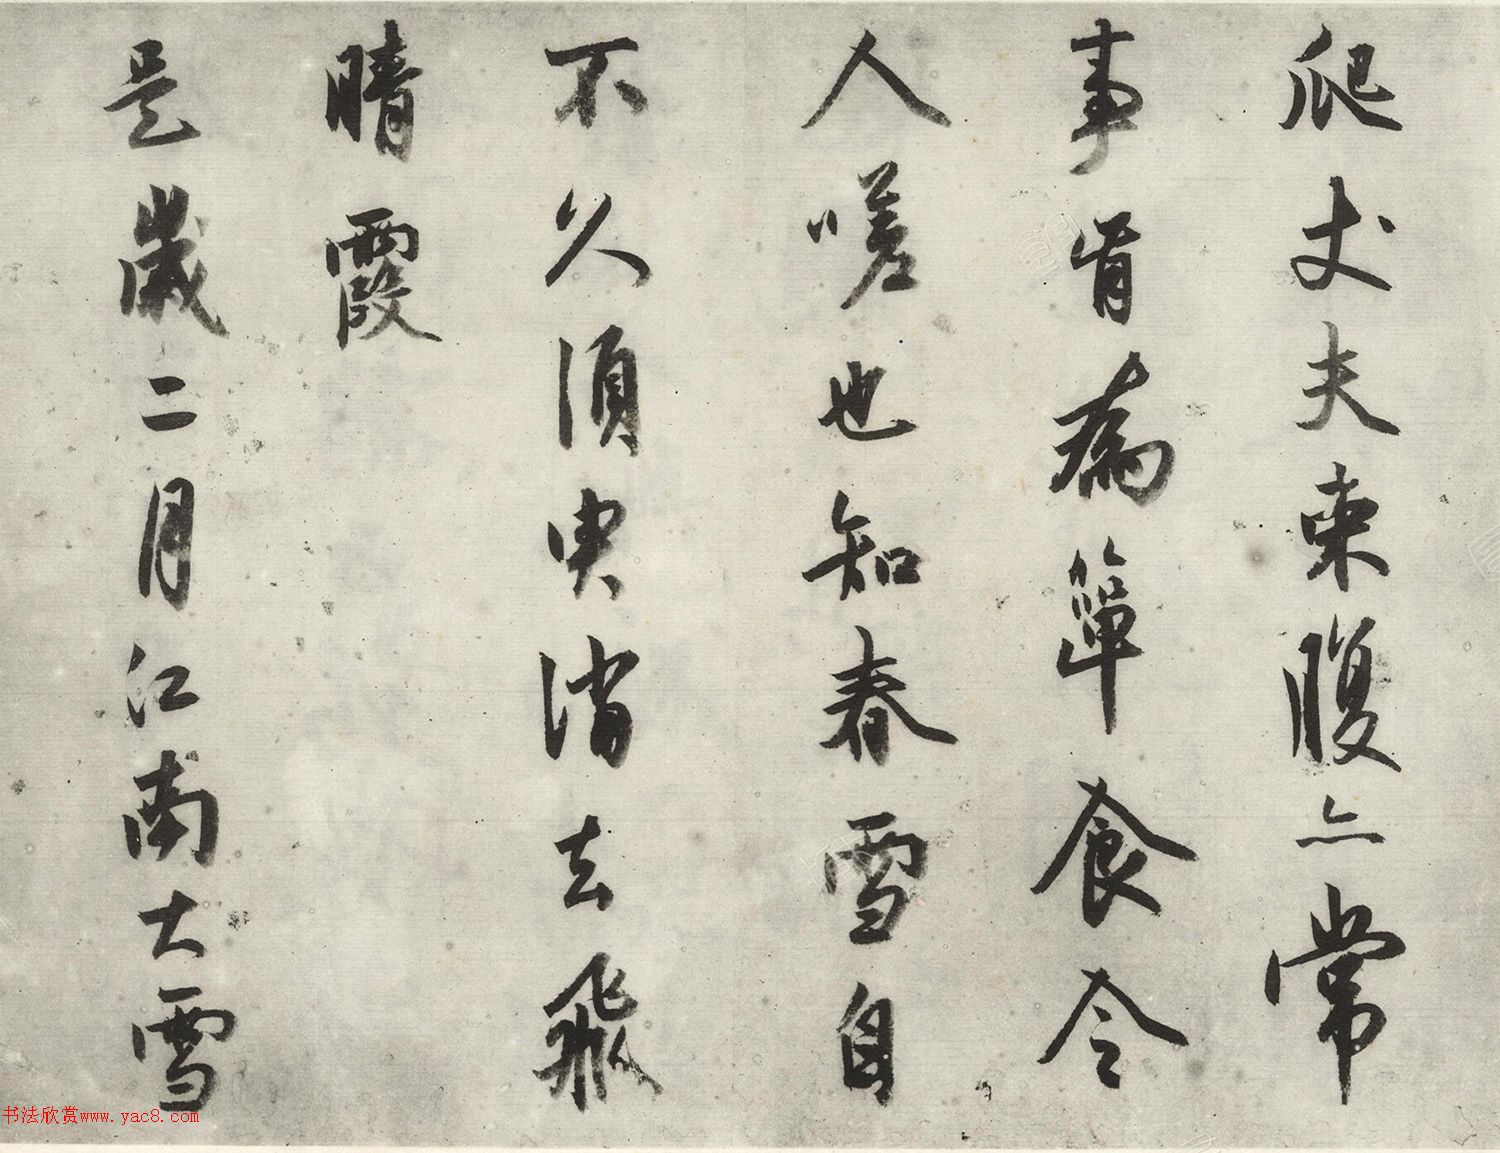 爬丈夫束腹亦常
事肯為簞食令
人嗟也知春雪自
不久須臾消去飛
晴霞
是歲二月江南大雪
书法欣赏www.yac8.com